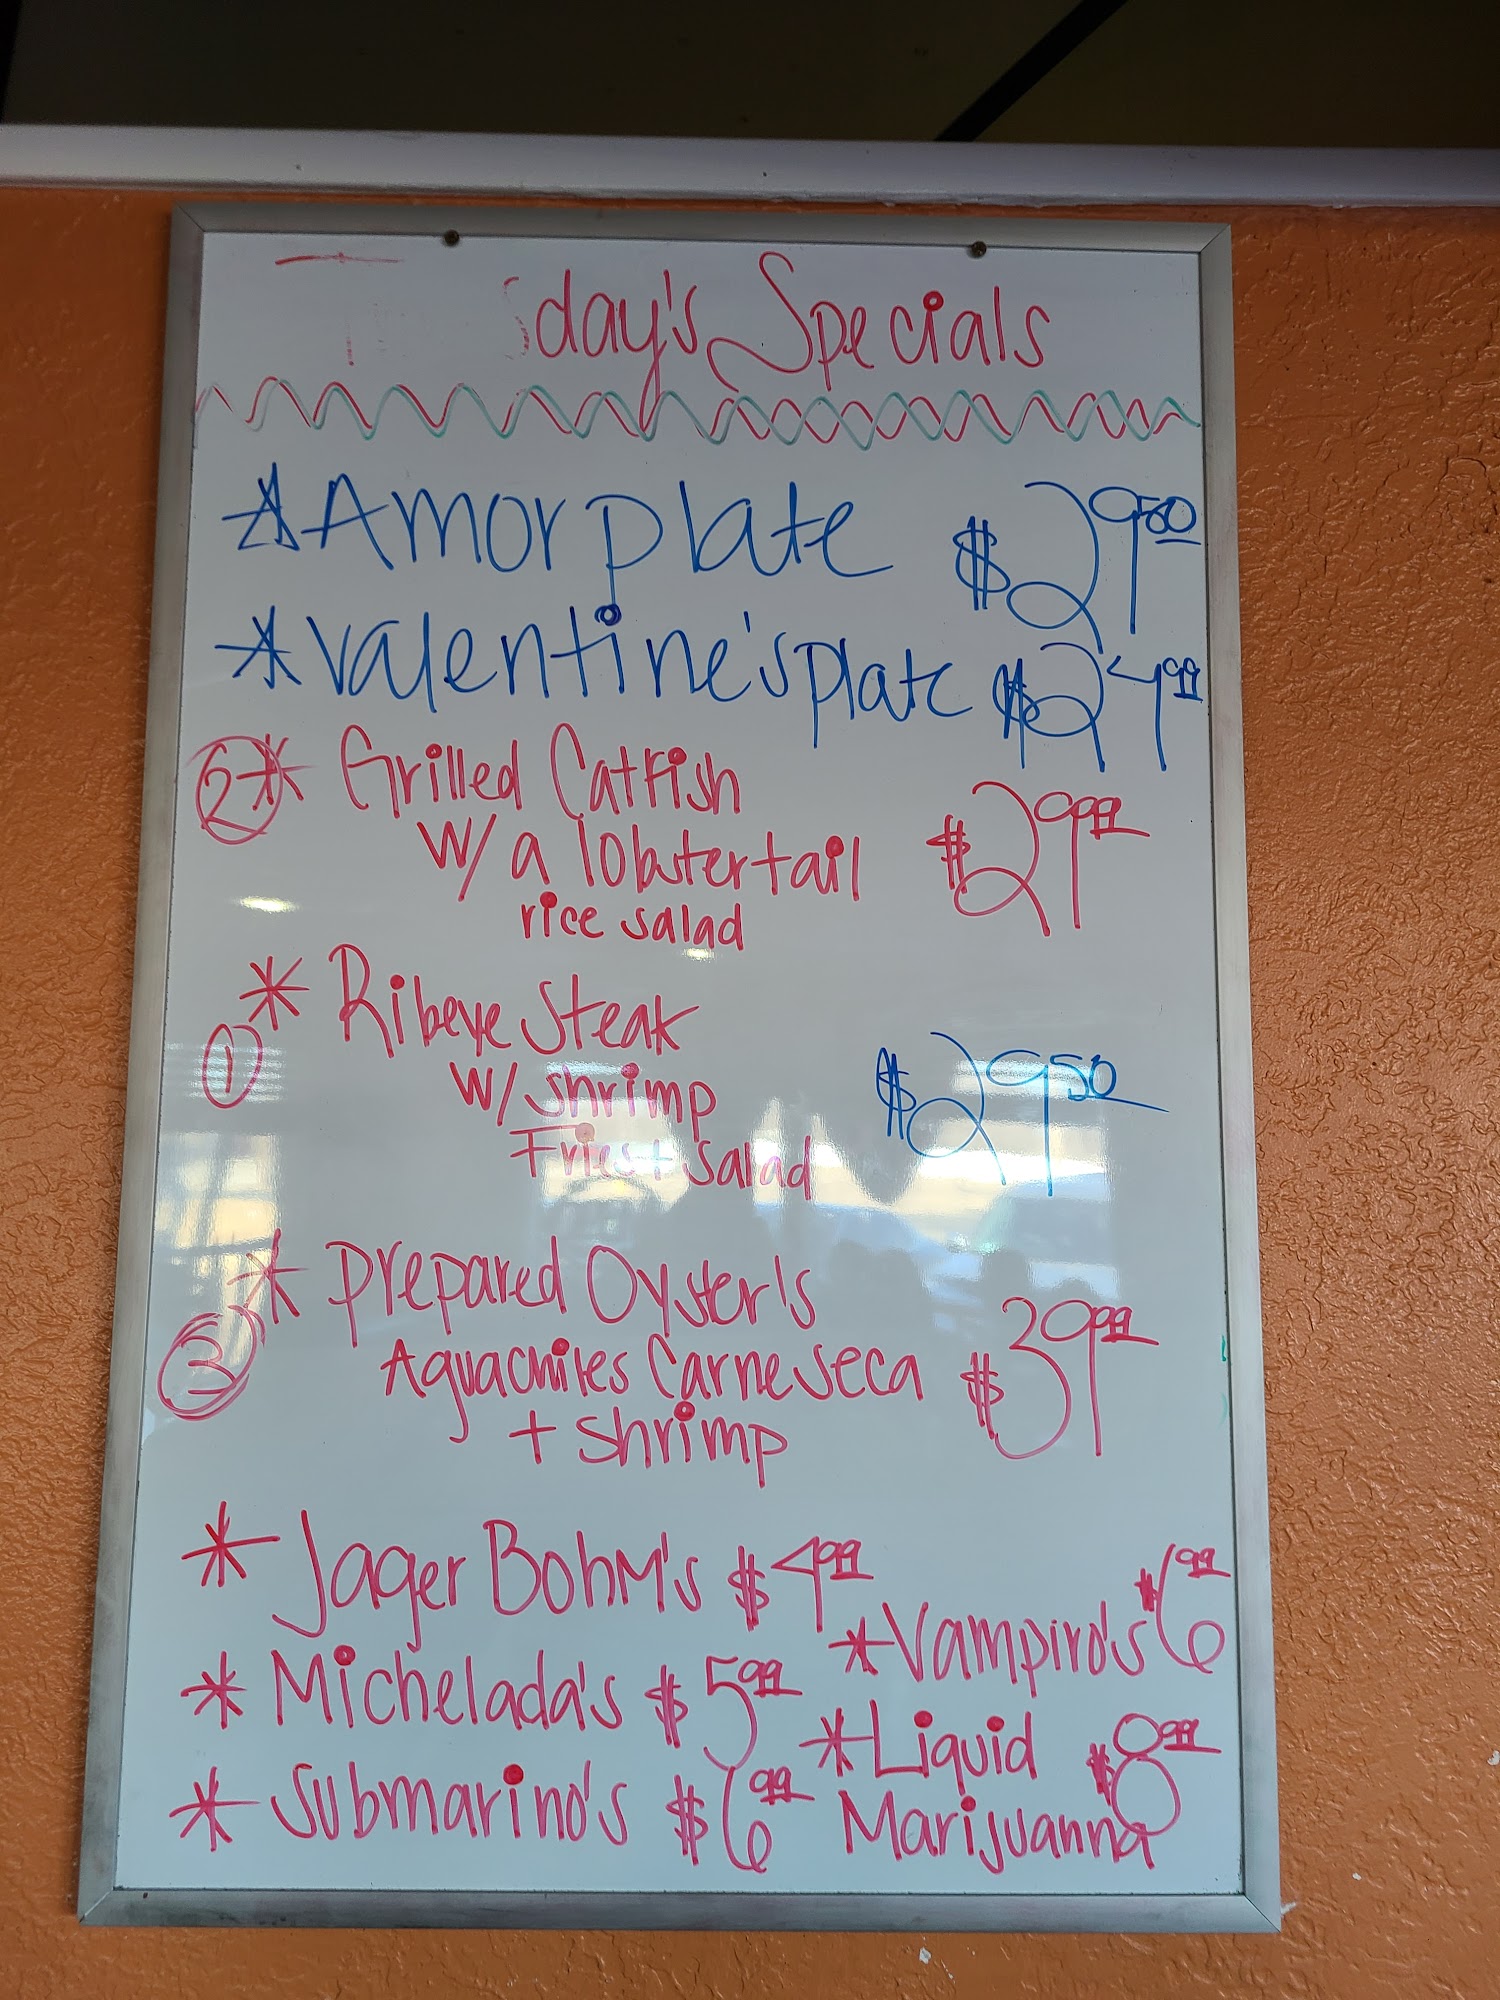 T sday's Specials
*Amor plate $29.50
*Valentine's plate $24.99
2* Grilled CatFish
w/ a lobster tail $29.99
rice salad
* Ribeye Steak
1 w/ shrimp $29.50
Fries + salad
* Prepared Oyster's
3 Aguachiles Carne seca $39.99
+ shrimp
* Jager Bohm's $4.99
*Vampiro's $6.99
* Michelada's $5.99
*Liquid Marijuanna $8.99
* Submarino's $6.99